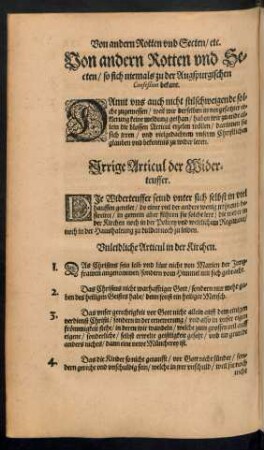 Von andern Rotten vnd Secten / etc.
Von andern Rotten vnd Se-
cten / so sich niemals zu der Augspurgischen
Confession bekant.
DAmit vns auch nicht stilschweigende sol-
che zugemessen / weil wir derselben in
keine meldung gethan / haben wir al-
lein die blossen Articul
sich irren / vnd vielgedachtem vnserm Christlichen
glauben vnd bekentnis zu wider leret.
Irrige Articul der Wider-
teuffer.
DIe Widerteuffer seind vnter sich selbst in viel
hauffen geteilet / da einer viel der ander wenig
in gemein aber
der Kirchen noch in der Policey vnd weltlichem Regiment /
noch in der Haushaltung zu dulden noch zu leiden.
Vnleidliche Articul in der Kirchen.
1. DAs Christus sein leib vnd blut nicht von Marien der Jung-
frawen angenommen / sondern vom Himmel mit sich gebracht.
2. Das Christus nicht warhafftiger Gott / sondern nur mehr ga-
ben des heiligen Geistes habe / denn sonst ein heiliger Mensch.
3. Das vnser gerechtigkeit vor Gott nicht allein auff dem einigen
verdienst Christi / sondern in der ernewerung / vnd also in vnser eigen
frömmigkeit stehe / in deren wir wandeln / welche zum
eigene / sonderliche / selbst erwelte geistligkeit gesetzt / vnd im grunde
anders nichts / dann eine newe Müncherey ist.
4. Das die Kinder so nicht getaufft / vor Gott nicht sünder / son-
dern gerecht vnd vnschuldig sein / welche in jrer vnschuld / weil sie noch
nicht